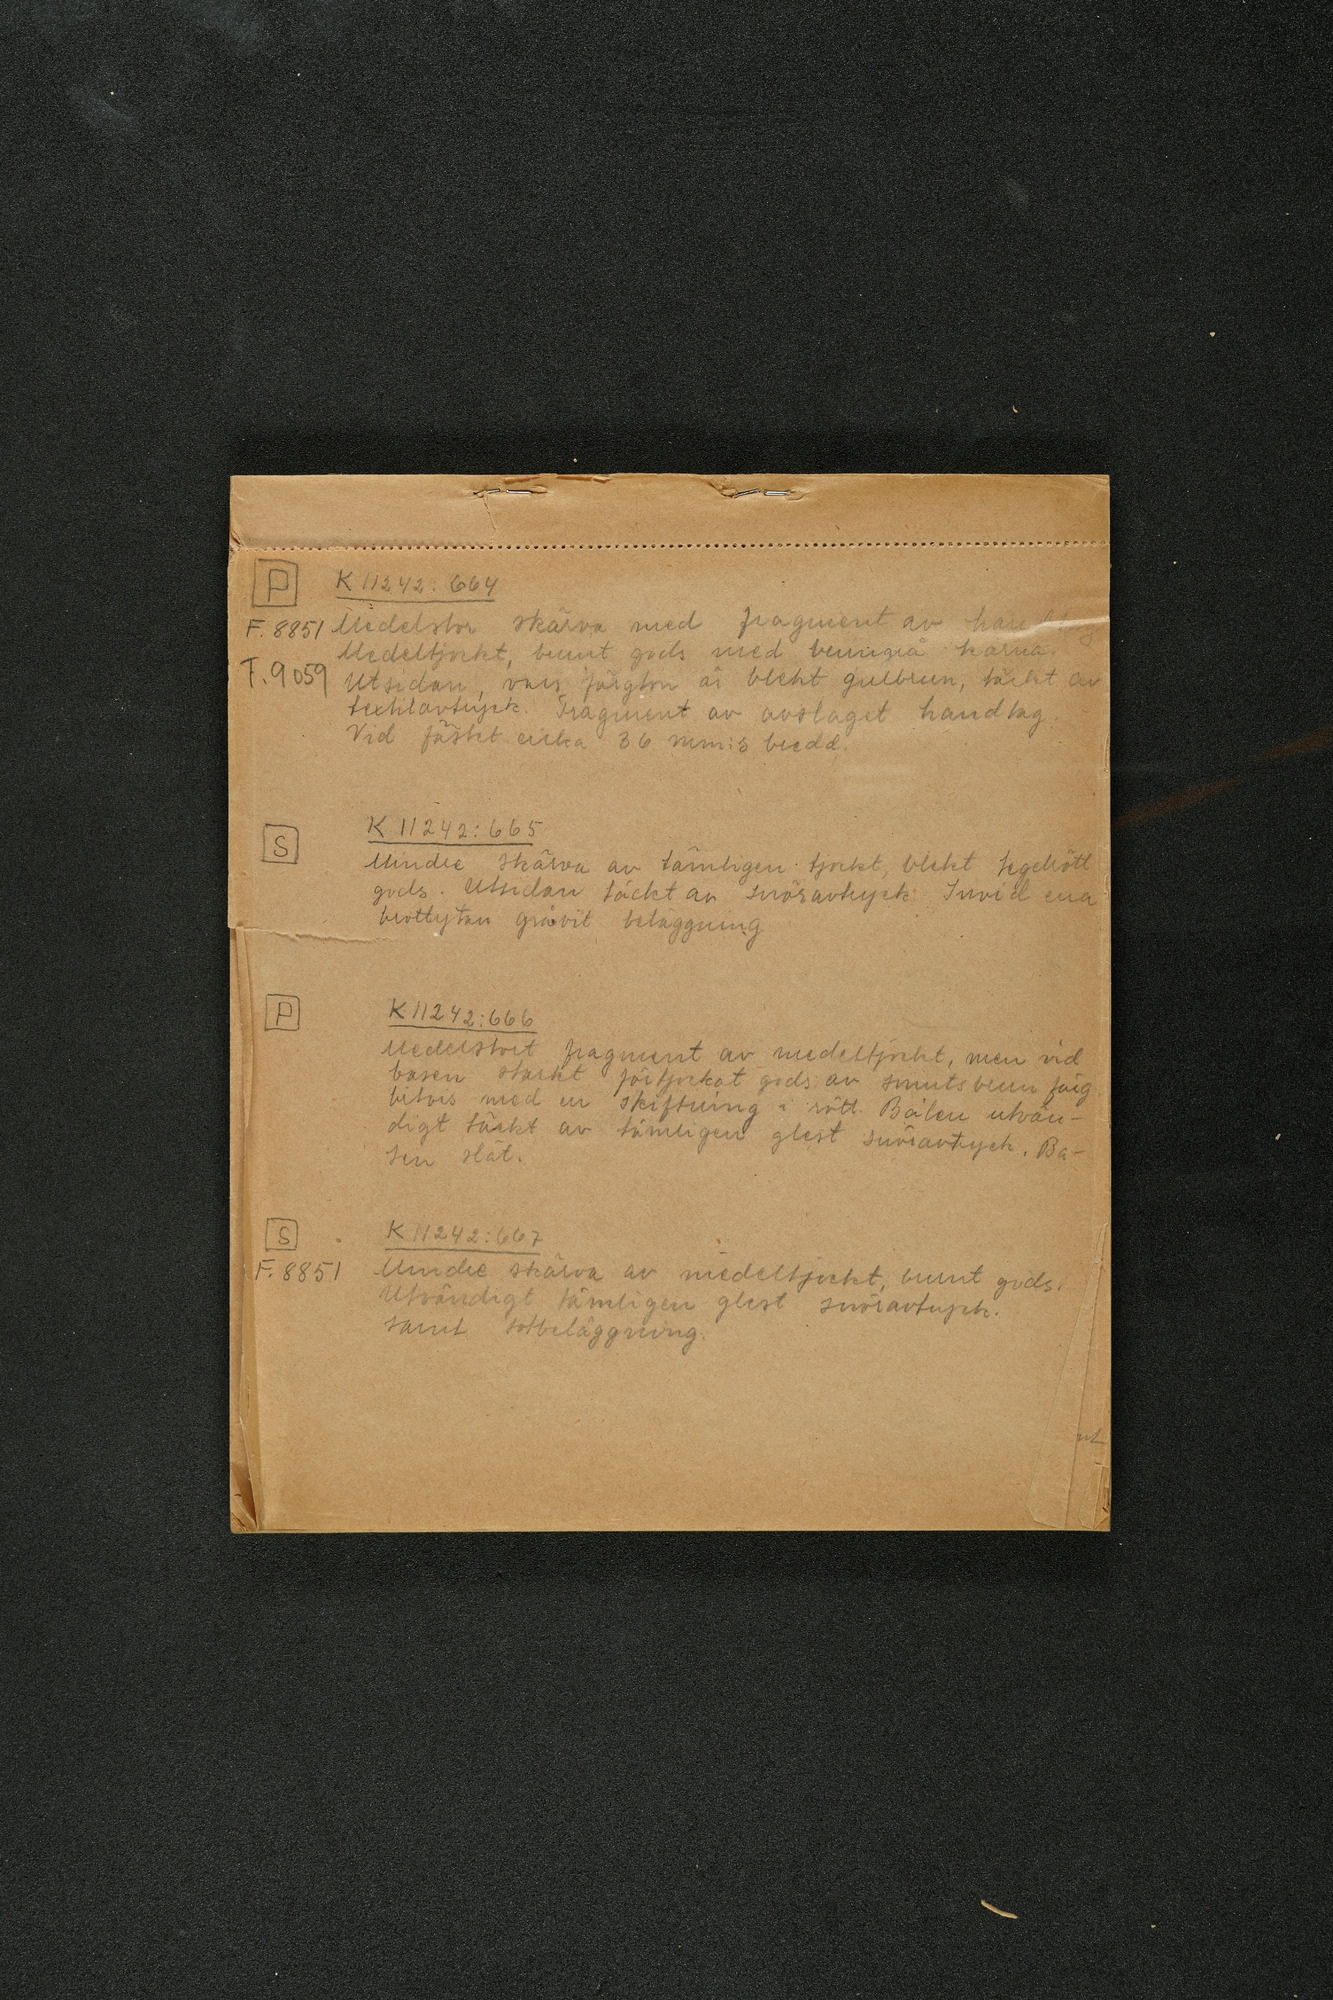 P K 11242:664
F. 8851 Medelstor skärva med fragment av handtag
Medeltjockt, brunt gods med brungrå kärna.
T. 9059 Utsidan, vars färgton är blekt gulbrun, täckt av
textilavtryck. Fragment av avslaget handtag.
Vid fästet cirka 36 mm:s bredd.
S K 11242:665
Mindre skärva av tämligen tjockt, blekt tegelrött
gods. Utsidan täckt av snöravtryck. Invid ena
brottytan gråvit beläggning
P K 11242:666
Medelstort fragment av medeltjockt, men vid
basen starkt förtjockat gods av smutsbrun färg
bitvis med en skiftning i rött. Bålen utvän-
digt täckt av tämligen glest snöravtryck. Ba-
sen slät.
S K 11242:667
F. 8851 Mindre skärva av medeltjockt, brunt gods.
Utvändigt tämligen glest snöravtryck.
samt sotbeläggning.